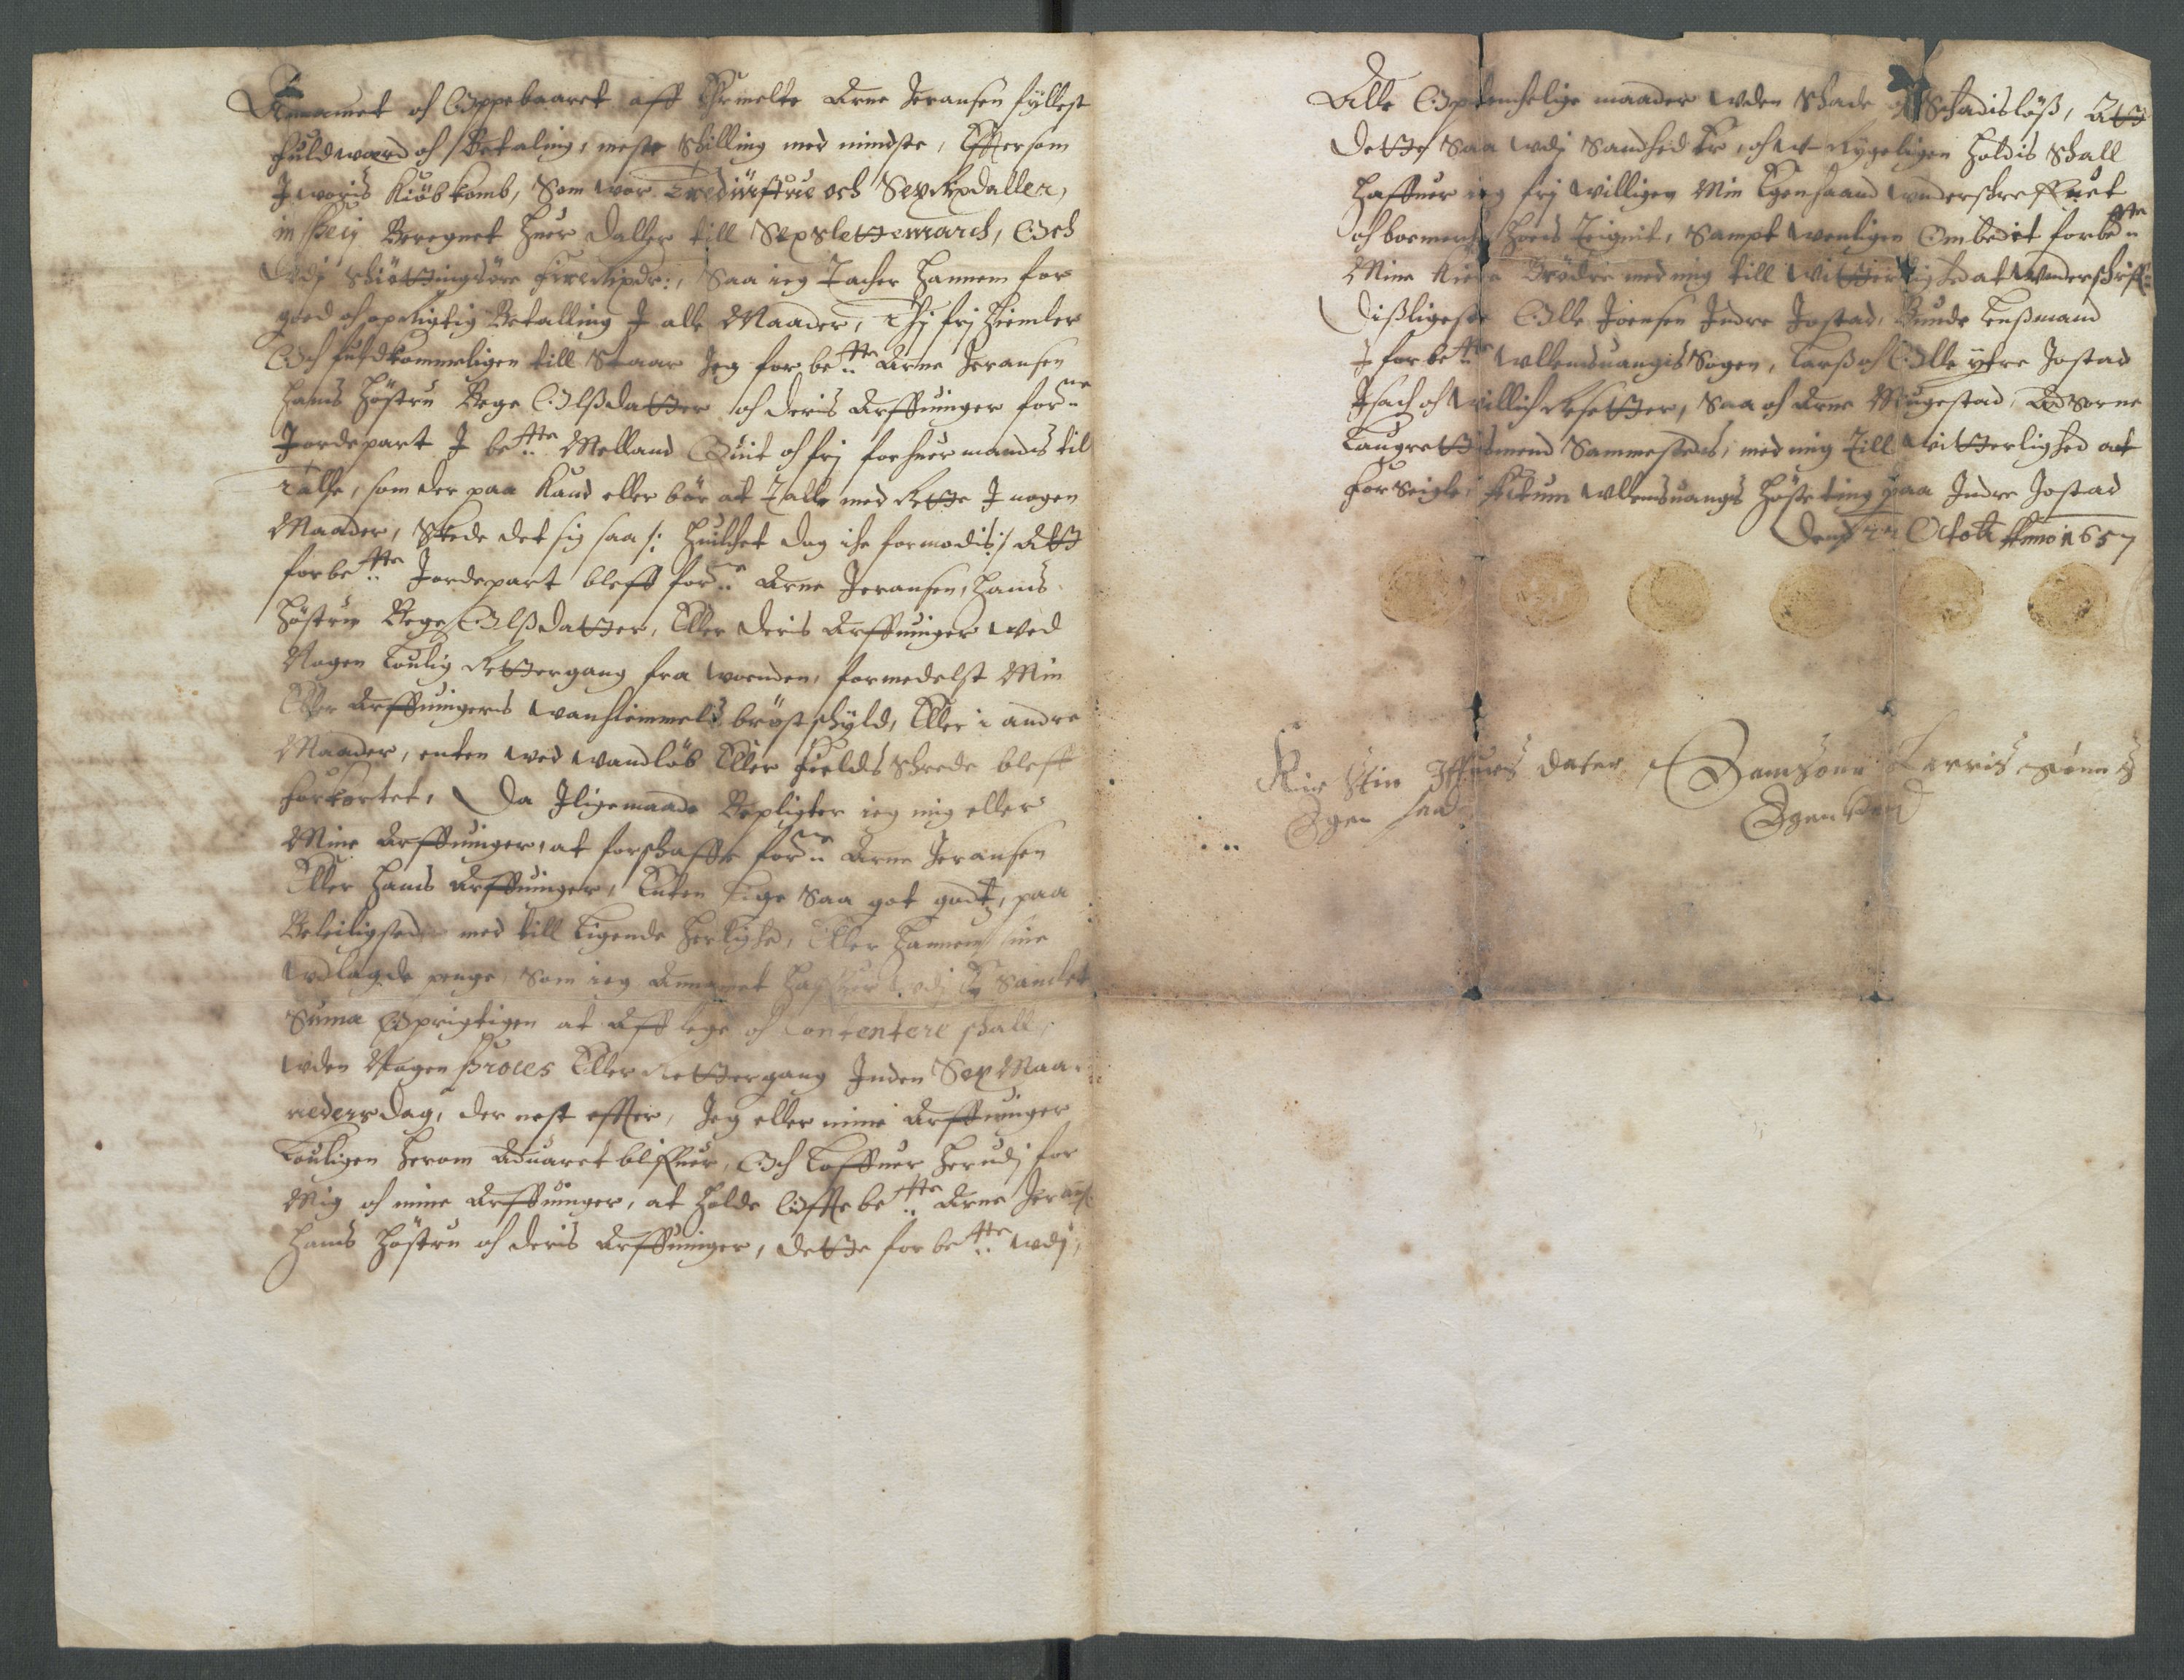 Annamet och Oppebaaret aff Ehrmelte Arne Jeransen fyllest
fuldwærd och Betaling, meste Skilling med mindste, Effter som
J woris Kiöb komb, Som war Trediufsture och Sex Rixdaller,
in Specij Beregnet huer Daller till Sex slettemarch, Och
Udj Skiöttingsöre fire Rixdr:, Saa ieg Tacher hannem for
goed och oprigtig Betalling J alle Maader, Thj frj Hiemler
Och fuldkommeligen till Staar Jeg forbete Arne Jeransen
Hans Höstru Brge Olßdatter och deris Arffuinger forne
Jordepart J bete Melland Quit och frj for huer mands til
Talle, som der paa Kand eller bör at Talle med Rette J nogen
Maader, Skede det sig saa /: huilchet dog iche formodis :/ Att
forbete Jordepart bleff forne Arne Jeransen, Hans
Höstru Brge Olßdatter, Eller deris Arffuinger wed
Nogen Loulig Rettergang fra wonden, formedelst Min
Eller Arffuingers wanhiemmels bröst skyld, Eller i andre
Maader, enten wed wandlöb Eller Fields Skrede bleff
forkortet, Da Jligemaade Bepligter ieg mig eller
Mine Arffuinger, at forschaffe forne Arne Jeransen
Eller Hans Arffuinger, Enten Lige Saa got godtz, paa
Beleiligsted med till Ligende Herlighed, Eller Hannem sine
wdlagde penge, Som ieg Annamet Haffuer wdj En Samlet
Suma Oprigtigen at Afflege och Contentere skall,
uden Nogen Proces Eller Rettergang Jnden Sex Maa-
nedersdag, der nest effter, Jeg eller mine Arffuinger
Louligen Herom Aduaret bliffuer, Och Loffuer Herudj for
Mig och mine Arffuinger, at Holde Offte bete Arne Jeransen
Hans Höstru och deris Arffuinger, dette forbete wdj,
Alle Optenchelige maader uden Skade och Skadislöß, Att
Dette Saa wdj Sandhed Er, och Ryggeligen Holdis Skall
Haffuer ieg frj willigen Min Egen Haand underskreffuet
och boemerche Hoes Teignit, Sampt wenligen Ombedet forbete
Mine Kiere Brödre med mig till witterlighed at Underskriffue
Dißligeste Olle Joensen Jndre Jostad, Bunde Lenßmand
J forbete Ullensuangis Sogen, Larß och Olle yttre Jostad
Jsach och willich Resetter, Saa och Arne Maagestad, Ad Sorne
Laugrettismend Sammesteds, med mig Till witterlighed at
forseigle, Actum Ullensuangs Höste ting paa Jndre Jostad
Dend Octob: Anno 1657
Kirstin Jffuers dater
Egen Haand
Samsonn Larris sönns
Egen Hand